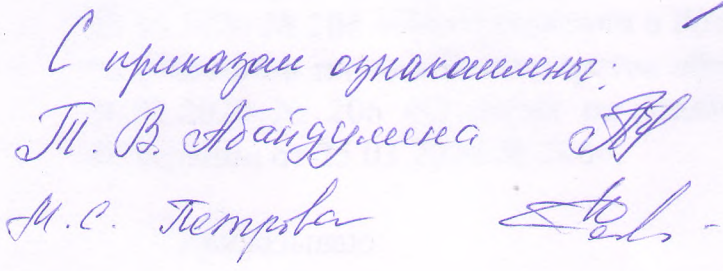 С приказом ознакомлены:
Т. В. Абайдулина
М. С. Петрова